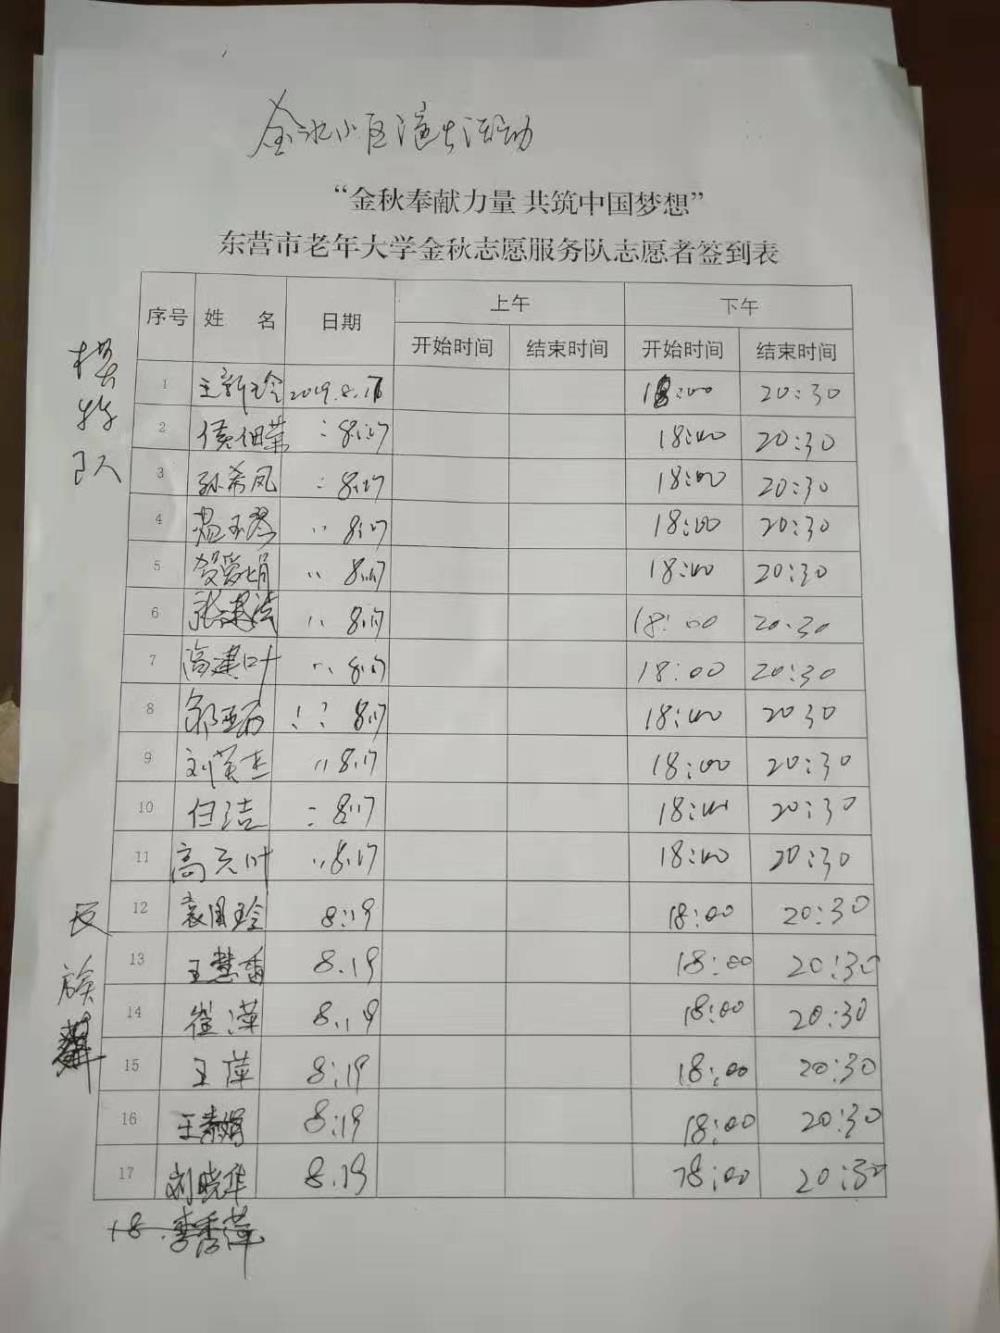 金水小区演出活动
“金秋奉献力量 共筑中国梦想”
东营市老年大学金秋志愿服务队志愿者签到表
序号 姓 名 日期 上午 下午
开始时间 结束时间 开始时间 结束时间
模特队
1 王新玲 2019.8.17 18:00 20:30
2 8.17 18:00 20:30
3 孙希凤 8.17 18:00 20:30
4 温玉琴 〃 8.17 18:00 20:30
5 贺爱娟 〃 8.17 18:00 20:30
6 张建 〃 8.17 18:00 20:30
7 高建叶 〃 8.17 18:00 20:30
8 郭亚 8.17 18:00 20:30
9 刘英杰 〃 8.17 18:00 20:30
10 白洁 8.17 18:00 20:30
11 高元叶 〃 8.17 18:00 20:30
民族舞
12 袁国玲 8.19 18:00 20:30
13 王慧香 8.19 18:00 20:30
14 崔萍 8.19 18:00 20:30
15 王萍 8.19 18:00 20:30
16 王素娟 8.19 18:00 20:30
17 刘晓华 8.19 18:00 20:30
18 李秀萍